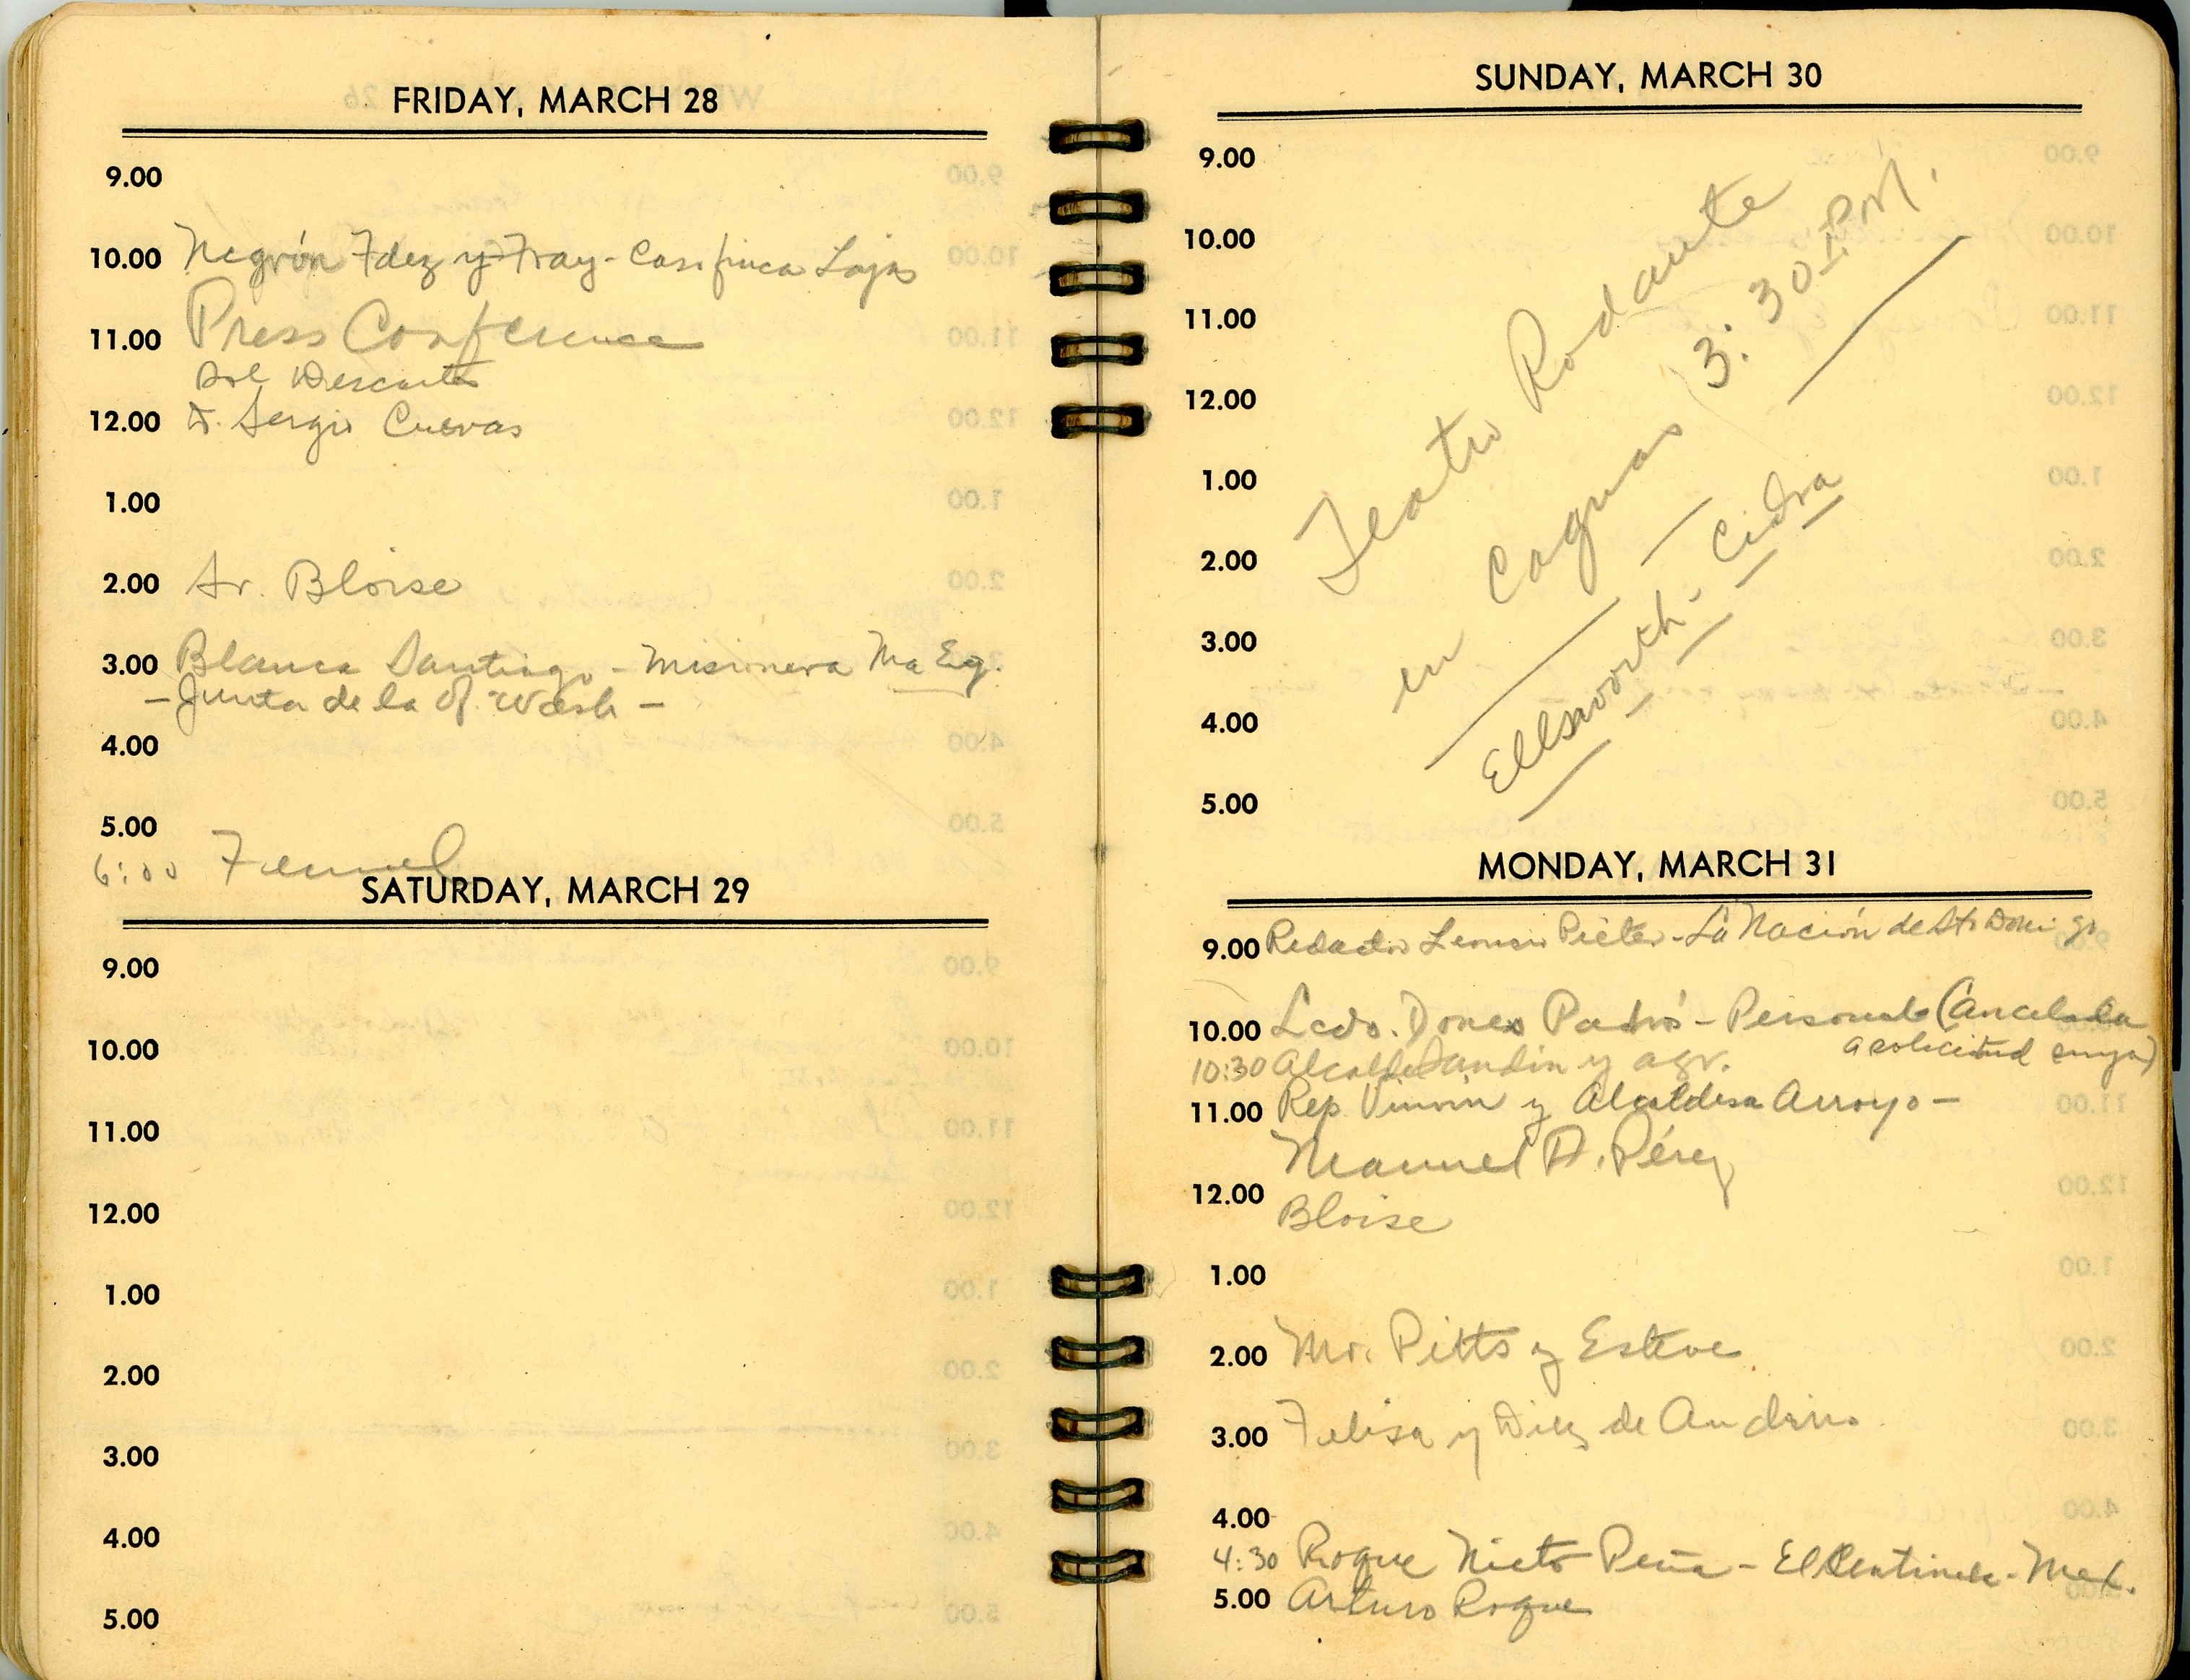 FRIDAY, MARCH 28
9.00
10.00 Negrón Fdez y Fray - Caso finca Lajas
Press Conference
11.00
Sol Descartes
12.00 D. Sergio Cuevas
1.00
2.00 Sr. Bloise
3.00 Blanca Santiago - Misionera Ma Eg.
- Junta de la Of. Wash -
4.00
5.00
6:00 Fennel
SATURDAY, MARCH 29
9.00
10.00
11.00
12.00
1.00
2.00
3.00
4.00
5.00
SUNDAY, MARCH 30
9.00
10.00
11.00
12.00
1.00
2.00
3.00
4.00
5.00
Teatro Rodante
en Caguas 3:30 P.M.
Ellsworth - Cidra
MONDAY, MARCH 31
9.00 Redactor Pieter - La Nación de Sto Domingo
10.00 Lcdo. Dones Padró - Personal (Cancelada
a solicitud suya)
10:30 Alcalde Landín y agr.
11.00 Rep. y Alcaldesa Arroyo -
Manuel A. Pérez
12.00
Bloise
1.00
2.00 Mr. Pitts y Esteve
3.00 Felisa y Diez de Andino
4.00
4:30 Roque Nieto Peña - El Centinela - Mex.
5.00 Arturo Roque